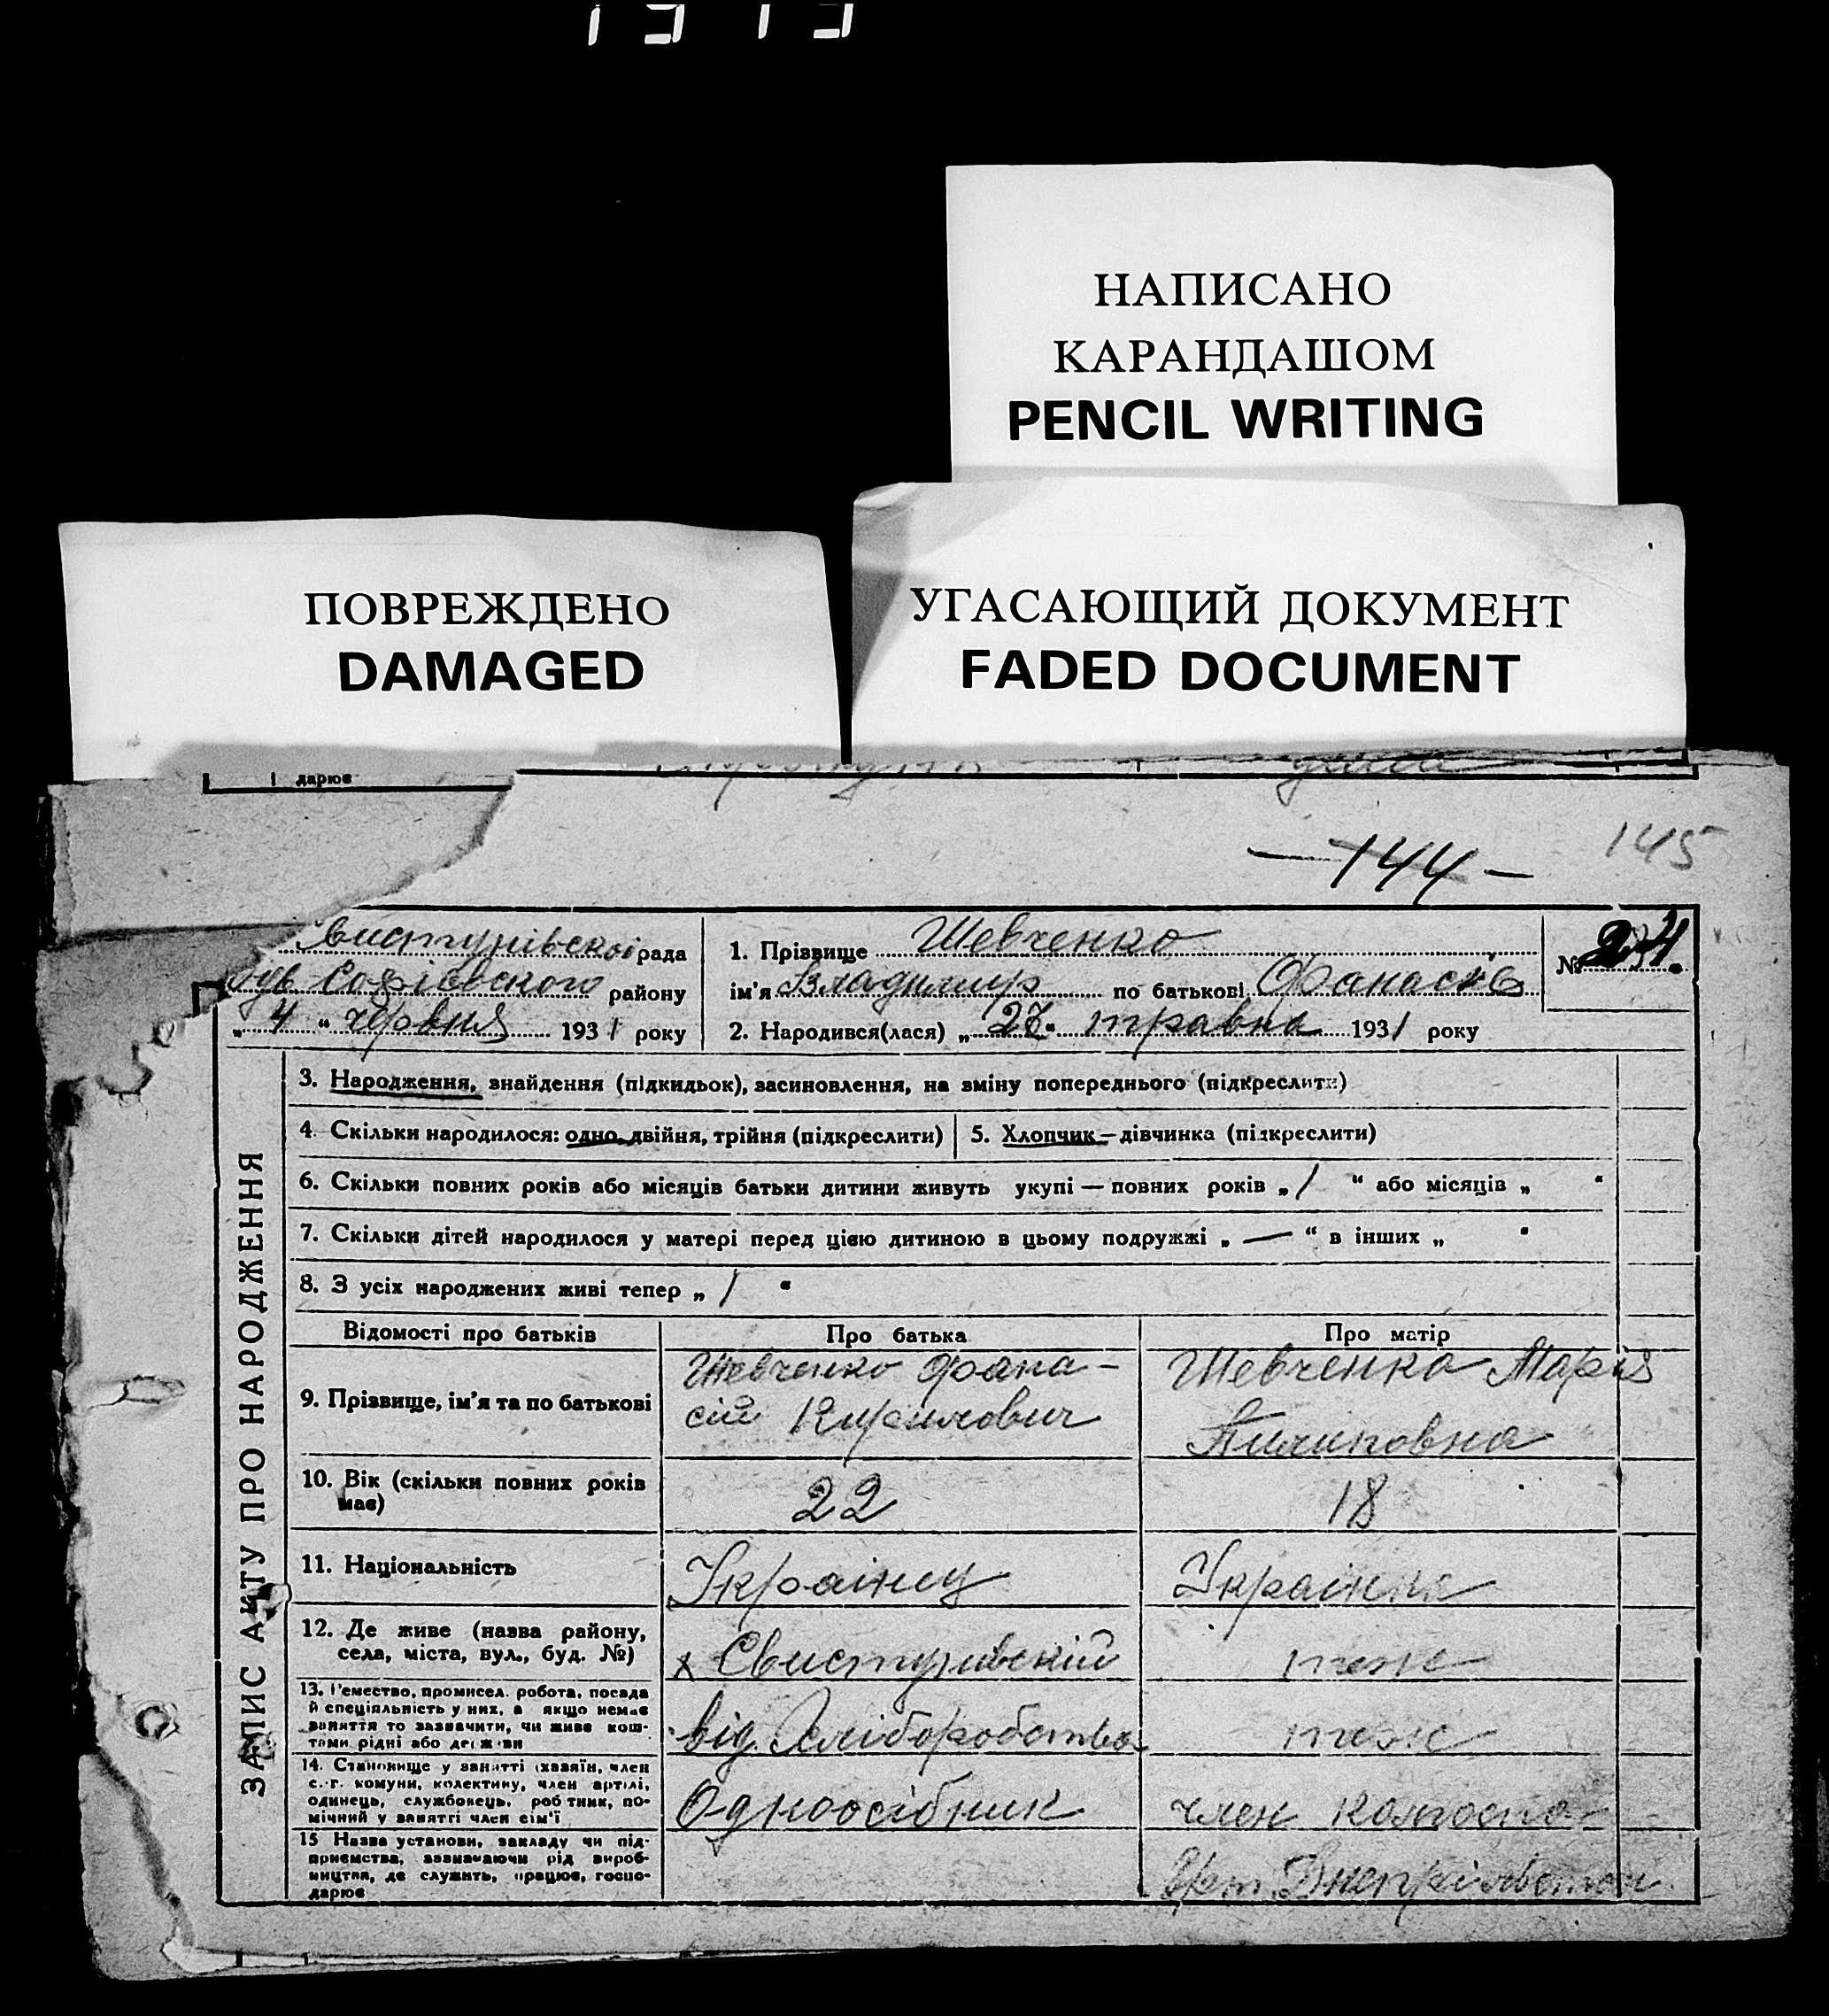 НАПИСАНО
КАРАНДАШОМ
PENCIL WRITING
ПОВРЕЖДЕНО
DAMAGED
УГАСАЮЩИЙ ДОКУМЕНТ
FADED DOCUMENT
дарює
— 144 —
145
рада
1. Прізвище Шевченко
№
Софіевского району
ім'я Владимир по батькові Офанасіїв
„ 4 “ червня 1931 року
2. Народився(лася) „ 27 “ травня 1931 року
ЗАПИС АКТУ ПРО НАРОДЖЕННЯ
3. Народження, знайдення (підкидьок), засиновлення, на зміну попереднього (підкреслити)
4. Скільки народилося: одно, двійня, трійня (підкреслити)
5. Хлопчик — дівчинка (підкреслити)
6. Скільки повних років або місяців батьки дитини живуть укупі — повних років „ 1 “ або місяців „ “
7. Скільки дітей народилося у матері перед цією дитиною в цьому подружжі „ — “ в інших „ “
8. З усіх народжених живі тепер „ 1 “
Відомості про батьків
Про батька
Про матір
9. Прізвище, ім'я та по батькові
Шевченко Офана-
сій Кирилович
Шевченко Марія
Пилиповна
10. Вік (скільки повних років
має)
22
18
11. Національність
Українец
Українка
12. Де живе (назва району,
села, міста, вул., буд. №)
х Свистунівский
теж
13. Ремество, промисел, робота, посада
й спеціяльність у них, а якщо немає
заняття то зазначити, чи живе кош-
тами рідні або держави
від. Хліборобства
теж
14. Становище у занятті (хазяїн, член
с.-г. комуни, колективу, член артілі,
одинець, службовець, робітник, по-
мічний у занятті член сім'ї
Одноосібник
член колгоспа
15 Назва установи, закладу чи під-
приємства, зазначаючи рід вироб-
ництва, де служить, працює, госпо-
дарює
Арт.